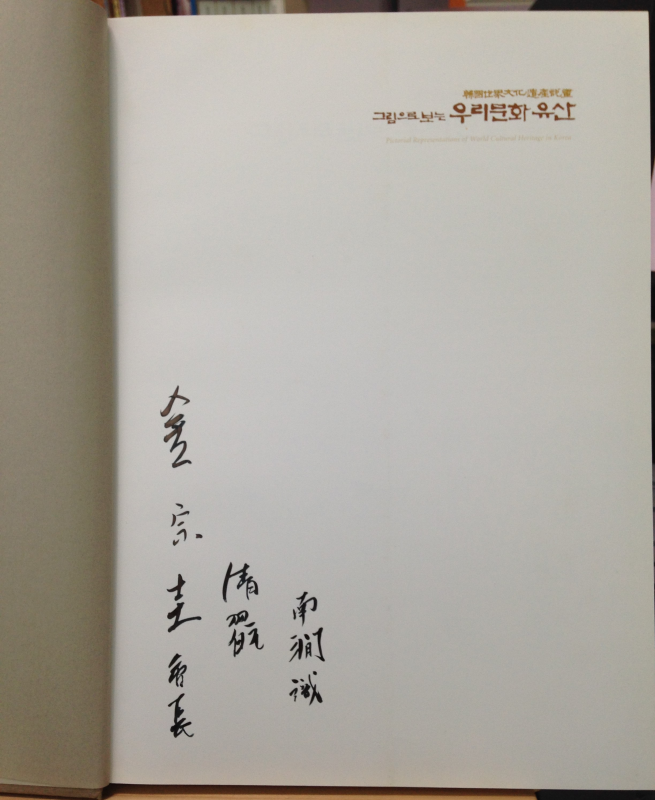 韓國世界文化遺産記畫
그림으로 보는 우리문화유산
Pictorial Representations of World Cultural Heritage in Korea
金宗圭 會長
清翫
南澗 識